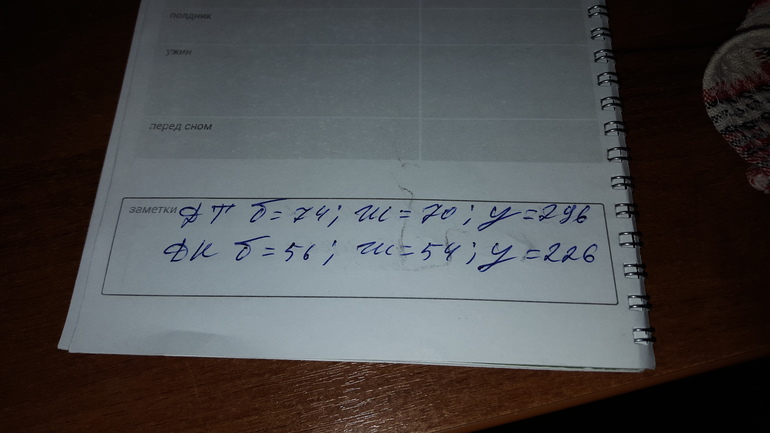 полдник
ужин
перед сном
заметки ДТ б=74; ж=70; у=296
ДК б=56; ж=54; у=226